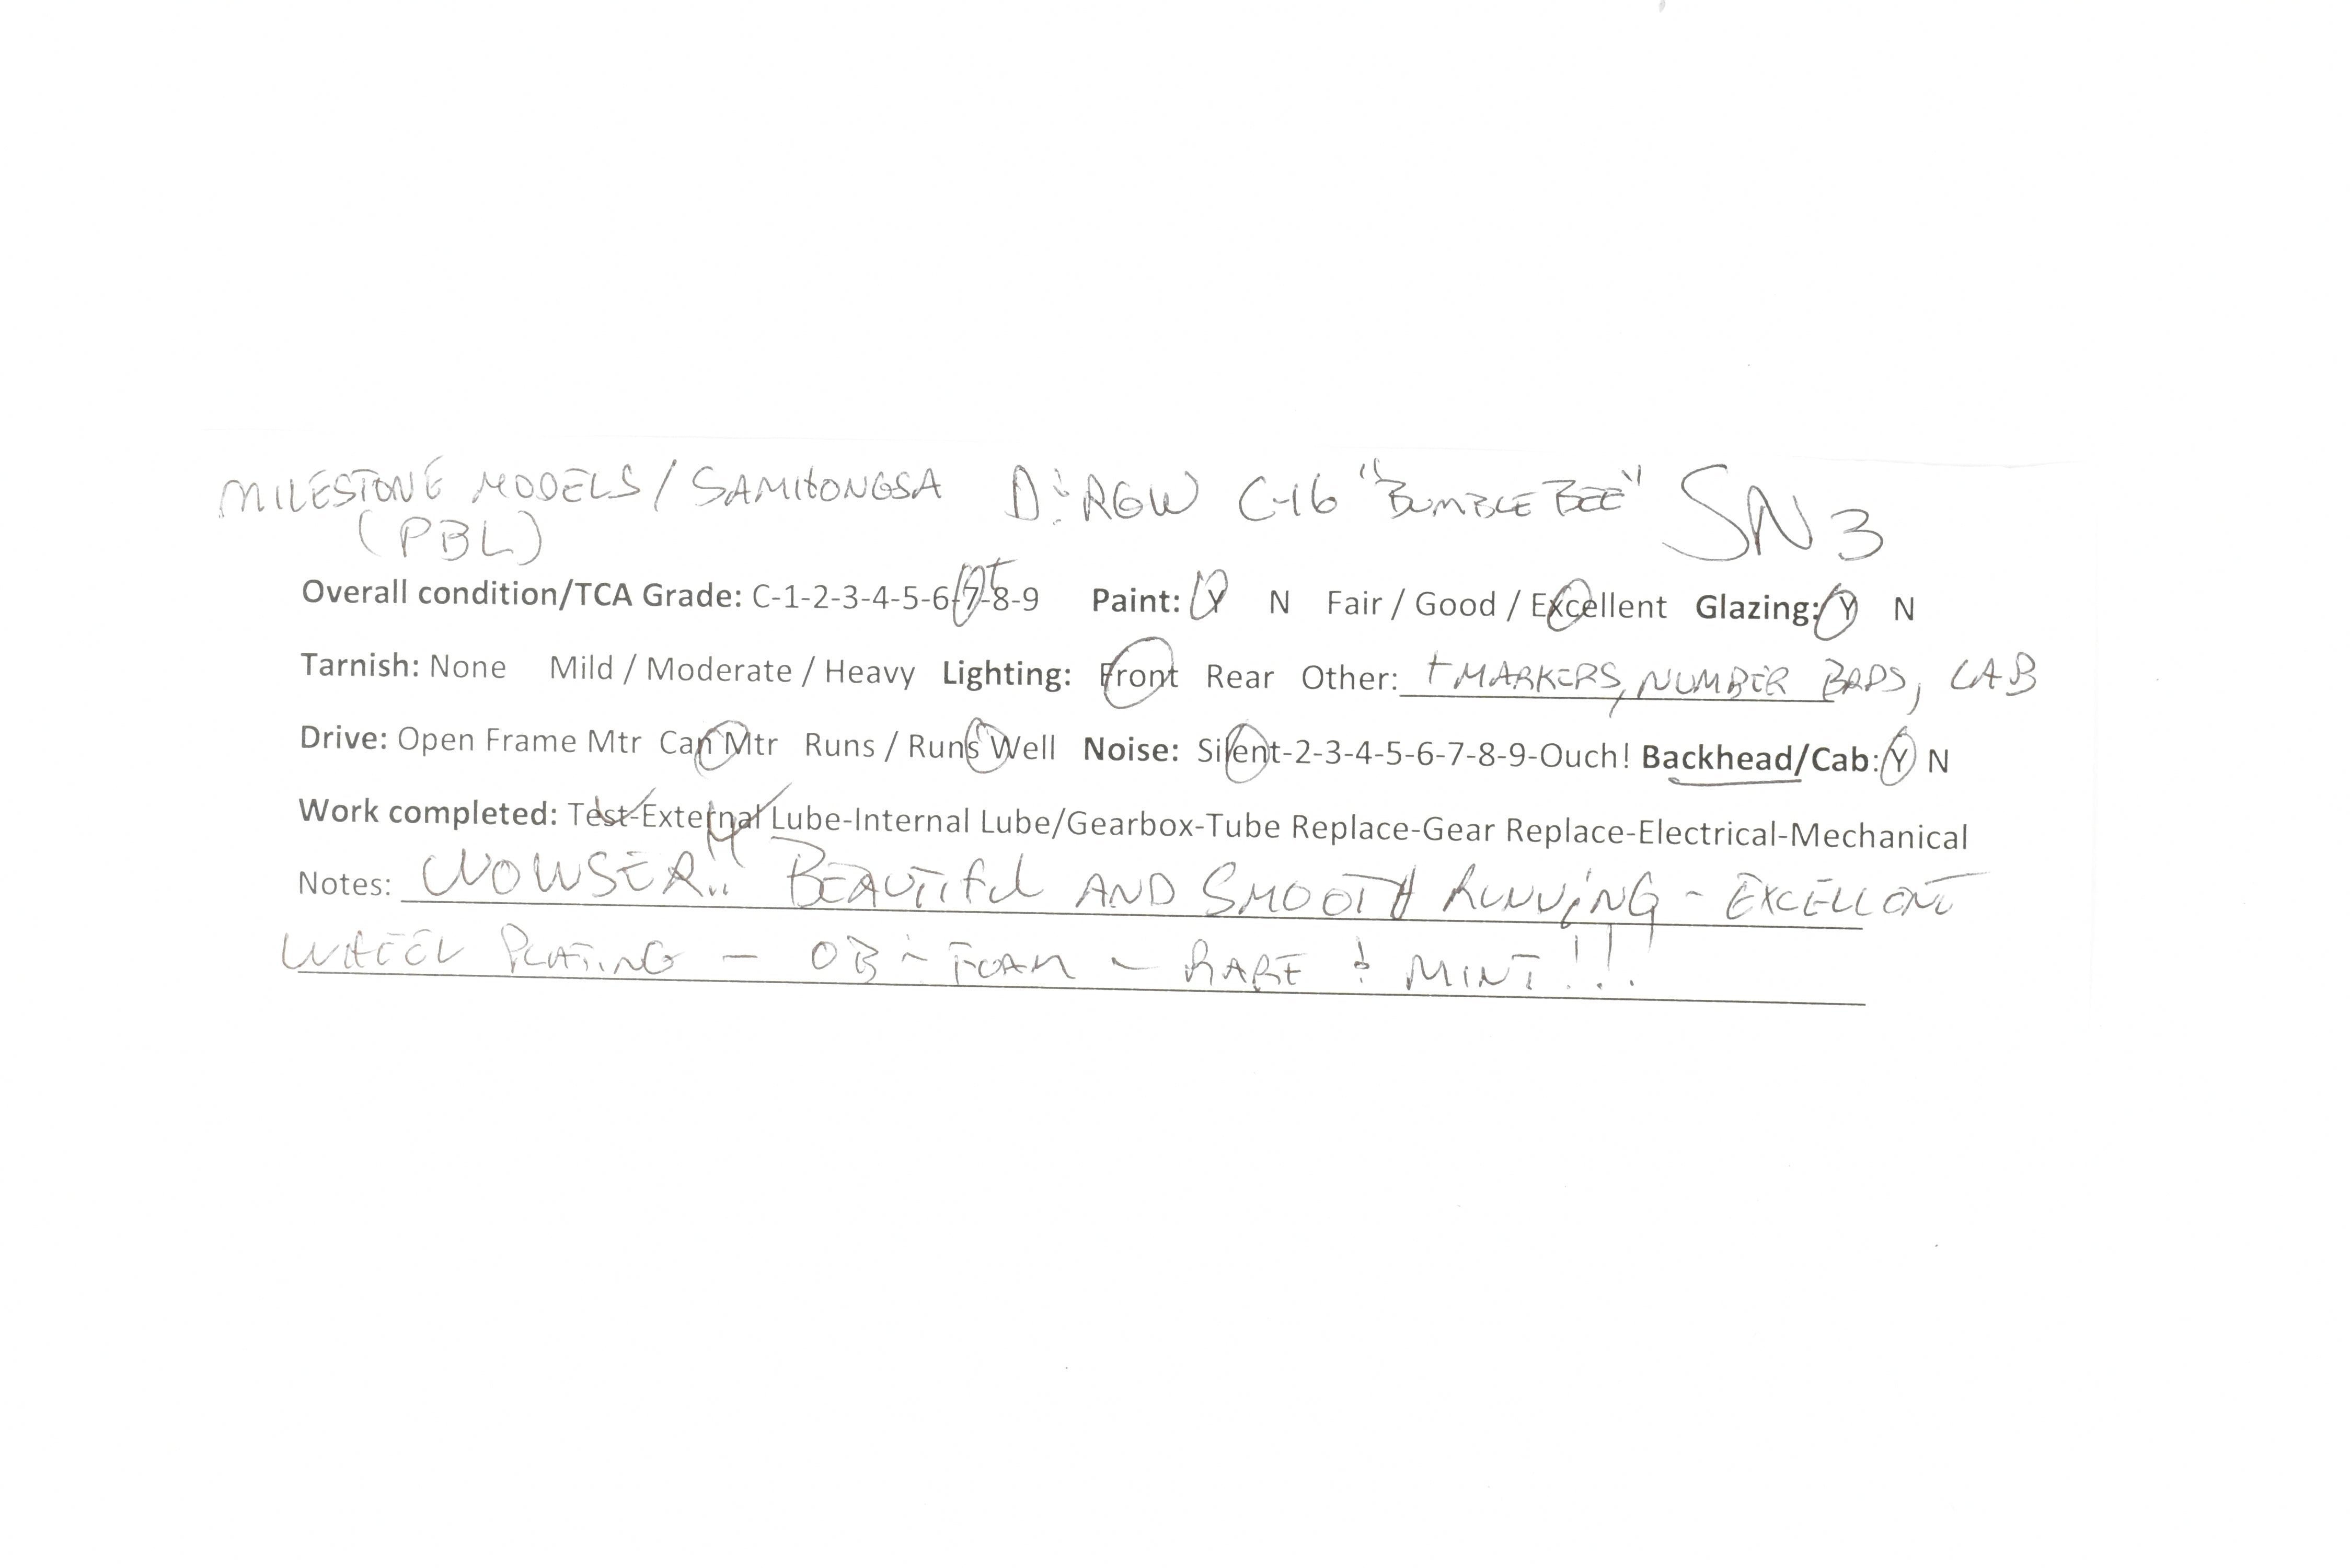 MILESTONE MODELS / SAMHONGSA D&RGW C-16 "BUMBLE BEE" SN3
(PBL)
Overall condition/TCA Grade: C-1-2-3-4-5-6-7-8-9 + Paint: Y N Fair / Good / Excellent Glazing: Y N
Tarnish: None Mild / Moderate / Heavy Lighting: Front Rear Other: + MARKERS, NUMBER BRDS, CAB
Drive: Open Frame Mtr Can Mtr Runs / Runs Well Noise: Silent-2-3-4-5-6-7-8-9-Ouch! Backhead/Cab: Y N
Work completed: Test-External Lube-Internal Lube/Gearbox-Tube Replace-Gear Replace-Electrical-Mechanical
Notes: WOWSER!! BEAUTIFUL AND SMOOTH RUNNING - EXCELLENT
WHEEL PLATING - OB - FOAM - RARE & MINT!!!